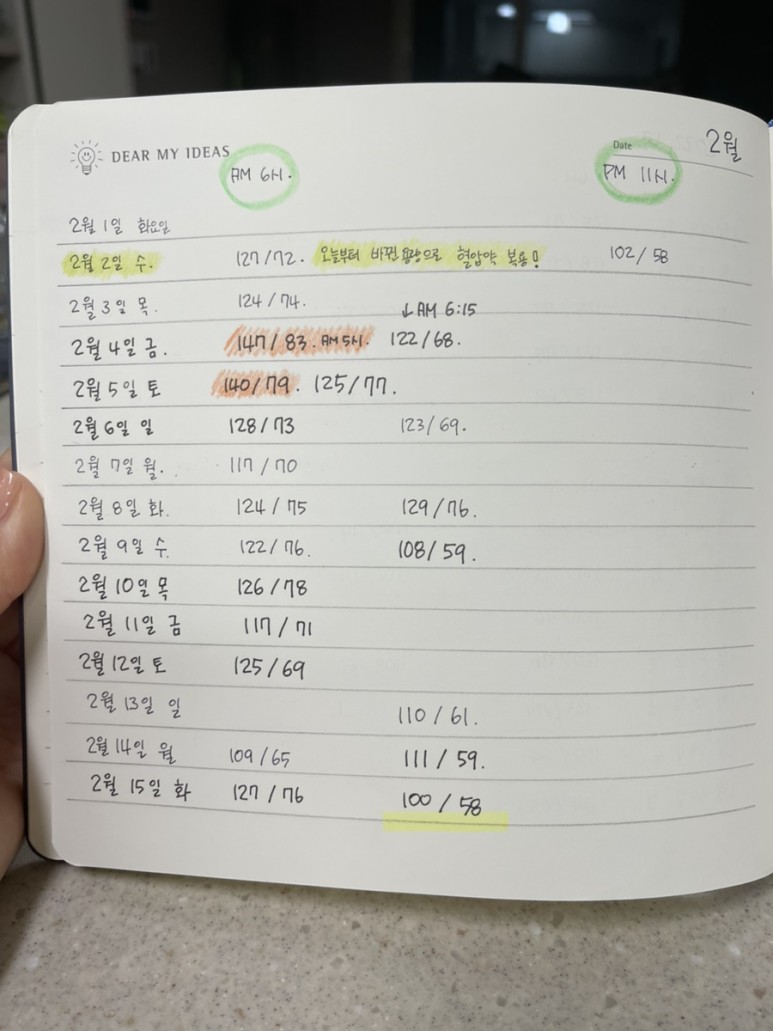 DEAR MY IDEAS Date 2월
AM 6시. PM 11시.
2월 1일 화요일
2월 2일 수. 127/72. 오늘부터 바뀐 용량으로 혈압약 복용! 102/58
2월 3일 목. 124/74. ↓AM 6:15
2월 4일 금. 147/83. AM 5시. 122/68.
2월 5일 토 140/79. 125/77.
2월 6일 일 128/73 123/69.
2월 7일 월. 117/70
2월 8일 화. 124/75 129/76.
2월 9일 수. 122/76. 108/59.
2월 10일 목 126/78
2월 11일 금 117/71
2월 12일 토 125/69
2월 13일 일 110/61.
2월 14일 월 109/65 111/59.
2월 15일 화 127/76 100/58